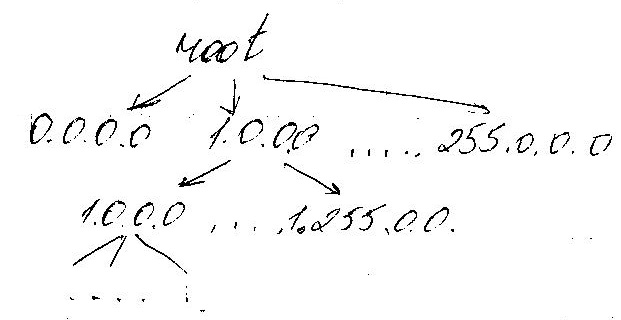 root
0.0.0.0 1.0.0.0 ..... 255.0.0.0
1.0.0.0 .... 1.255.0.0.
.....